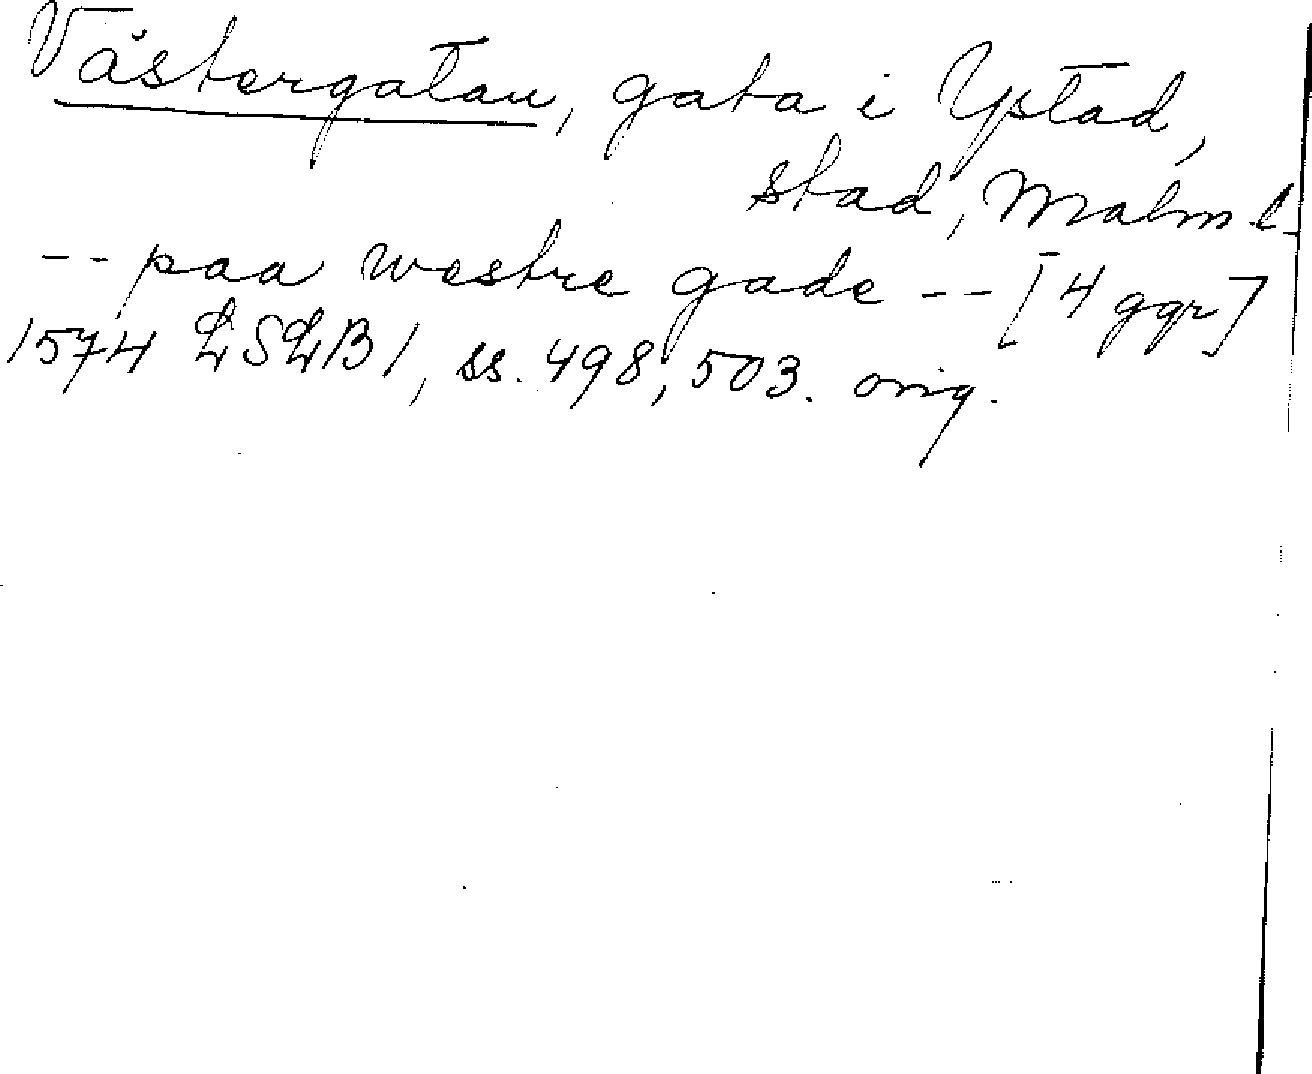 Västergatan, gata i Ystad,
stad, Malm. l.
-- paa westre gade -- [4 ggr]
1574 LSLB 1, ss. 498, 503. orig.